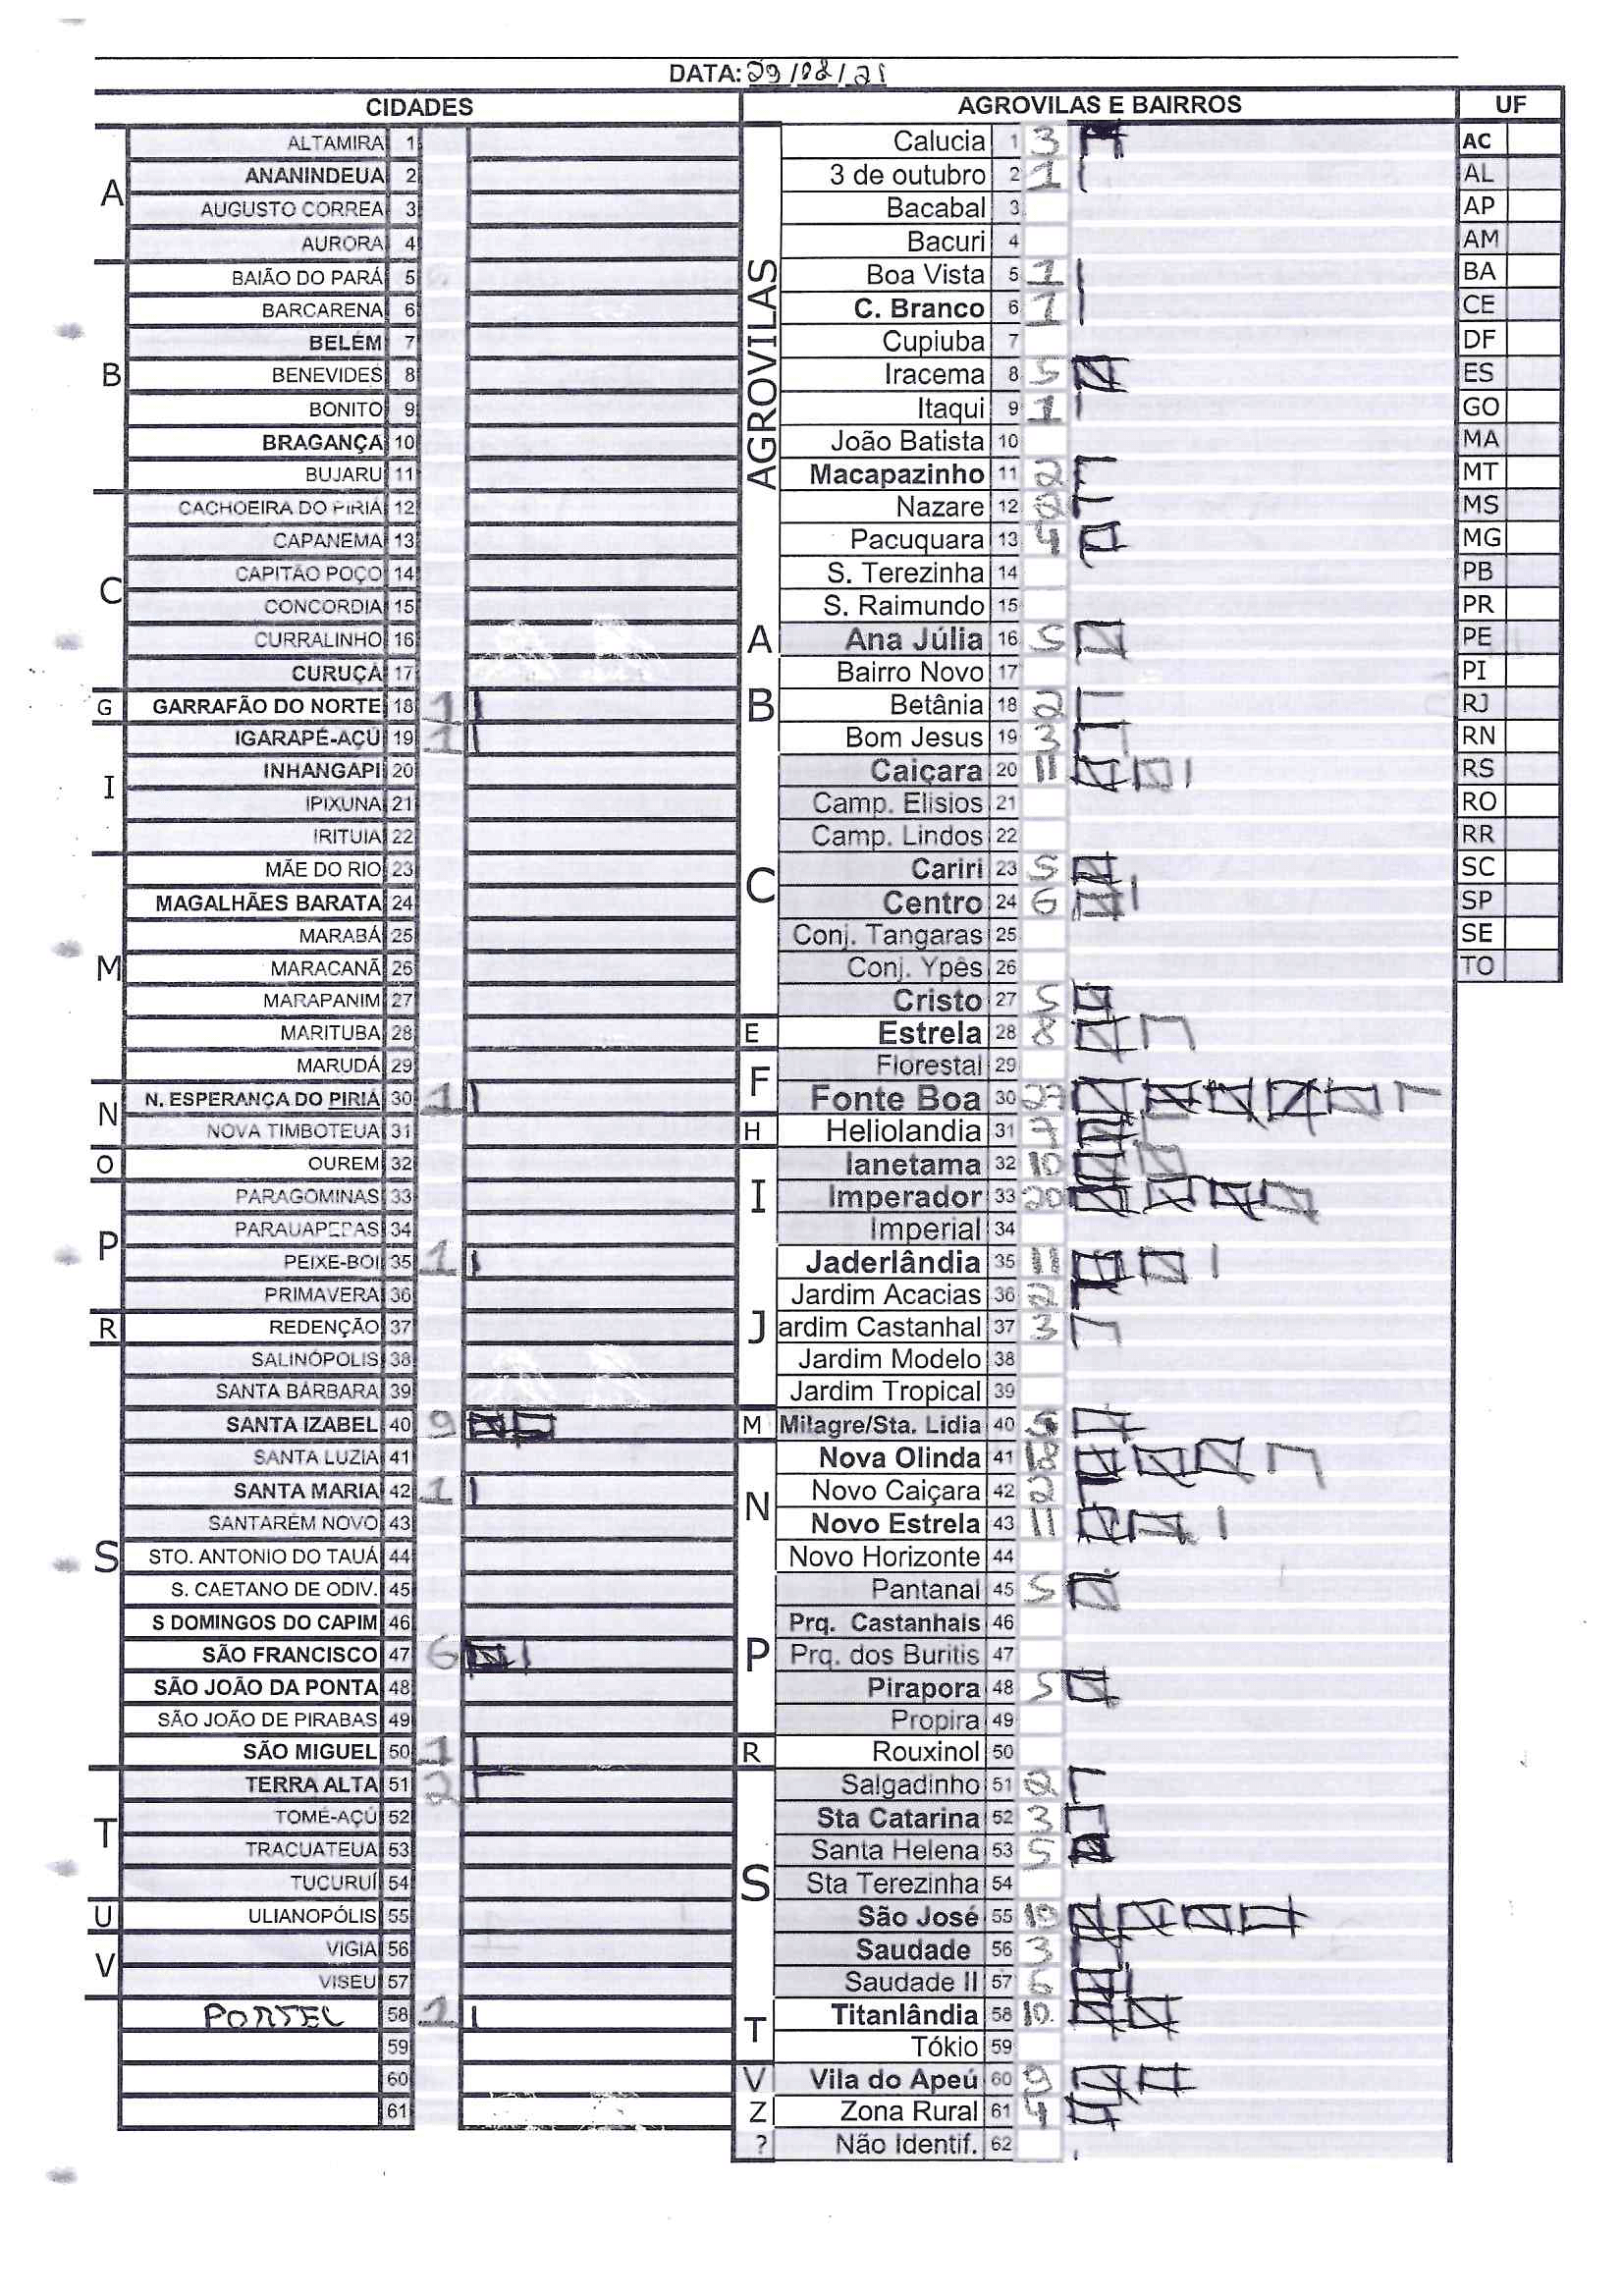 DATA: 29/08/21
CIDADES AGROVILAS E BAIRROS UF
A
ALTAMIRA 1
ANANINDEUA 2
AUGUSTO CORREA 3
AURORA 4
B
BAIÃO DO PARÁ 5
BARCARENA 6
BELÉM 7
BENEVIDES 8
BONITO 9
BRAGANÇA 10
BUJARU 11
C
CACHOEIRA DO PIRIÁ 12
CAPANEMA 13
CAPITÃO POÇO 14
CONCORDIA 15
CURRALINHO 16
CURUÇA 17
G
GARRAFÃO DO NORTE 18 1
I
IGARAPÉ-AÇÚ 19 1
INHANGAPI 20
IPIXUNA 21
IRITUIA 22
M
MÃE DO RIO 23
MAGALHÃES BARATA 24
MARABÁ 25
MARACANÃ 26
MARAPANIM 27
MARITUBA 28
MARUDÁ 29
N
N. ESPERANÇA DO PIRIÁ 30 1
NOVA TIMBOTEUA 31
O
OUREM 32
P
PARAGOMINAS 33
PARAUAPEPAS 34
PEIXE-BOI 35 1
PRIMAVERA 36
R
REDENÇÃO 37
S
SALINÓPOLIS 38
SANTA BÁRBARA 39
SANTA IZABEL 40 9
SANTA LUZIA 41
SANTA MARIA 42 1
SANTARÉM NOVO 43
STO. ANTONIO DO TAUÁ 44
S. CAETANO DE ODIV. 45
S DOMINGOS DO CAPIM 46
SÃO FRANCISCO 47 6
SÃO JOÃO DA PONTA 48
SÃO JOÃO DE PIRABAS 49
SÃO MIGUEL 50 1
T
TERRA ALTA 51 2
TOMÉ-AÇÚ 52
TRACUATEUA 53
TUCURUÍ 54
U
ULIANOPÓLIS 55
V
VIGIA 56
VISEU 57
PORTEL 58 1
59
60
61
AGROVILAS
Calucia 1 3
3 de outubro 2 1
Bacabal 3
Bacuri 4
Boa Vista 5 1
C. Branco 6 1
Cupiuba 7
Iracema 8 5
Itaqui 9 1
João Batista 10
Macapazinho 11 2
Nazare 12 2
Pacuquara 13 4
S. Terezinha 14
S. Raimundo 15
A
Ana Júlia 16 5
Bairro Novo 17
B
Betânia 18 2
Bom Jesus 19 3
C
Caiçara 20 11
Camp. Elisios 21
Camp. Lindos 22
Cariri 23 5
Centro 24 6
Conj. Tangaras 25
Conj. Ypês 26
Cristo 27 5
E
Estrela 28 8
F
Florestal 29
Fonte Boa 30
H
Heliolandia 31
I
Ianetama 32 10
Imperador 33 20
Imperial 34
J
Jaderlândia 35 11
Jardim Acacias 36 2
ardim Castanhal 37 3
Jardim Modelo 38
Jardim Tropical 39
M
Milagre/Sta. Lidia 40 5
N
Nova Olinda 41 18
Novo Caiçara 42 2
Novo Estrela 43 11
Novo Horizonte 44
P
Pantanal 45 5
Prq. Castanhais 46
Prq. dos Buritis 47
Pirapora 48 5
Propira 49
R
Rouxinol 50
S
Salgadinho 51 2
Sta Catarina 52 3
Santa Helena 53 5
Sta Terezinha 54
São José 55
Saudade 56 3
Saudade II 57 6
T
Titanlândia 58 10
Tókio 59
V
Vila do Apeú 60 9
Z
Zona Rural 61 4
?
Não Identif. 62
AC
AL
AP
AM
BA
CE
DF
ES
GO
MA
MT
MS
MG
PB
PR
PE
PI
RJ
RN
RS
RO
RR
SC
SP
SE
TO